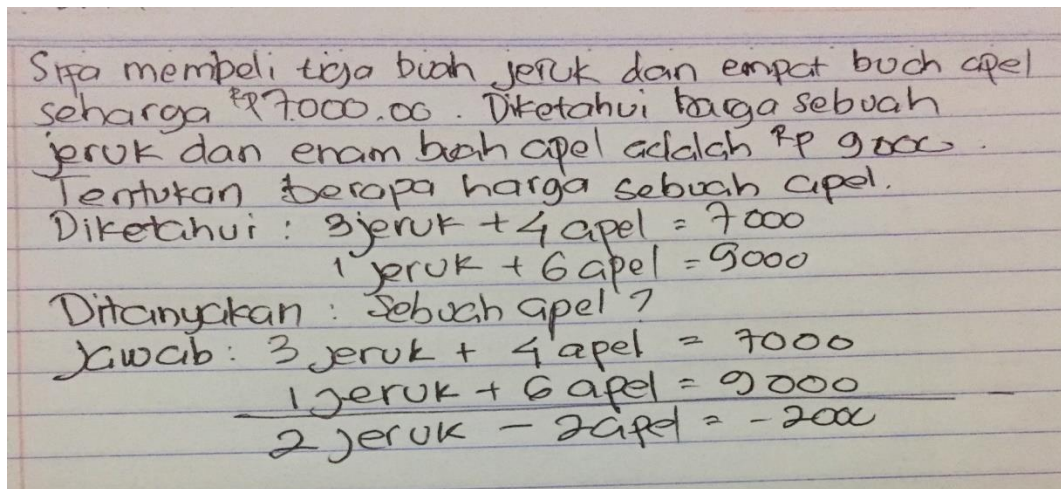 Sifa membeli tiga buah jeruk dan empat buah apel
seharga Rp7.000.00. Diketahui harga sebuah
jeruk dan enam buah apel adalah Rp 9000.
Tentukan berapa harga sebuah apel.
Diketahui : 3 jeruk + 4 apel = 7000
1 jeruk + 6 apel = 9000
Ditanyakan : Sebuah apel ?
Jawab : 3 jeruk + 4 apel = 7000
1 jeruk + 6 apel = 9000 -
2 jeruk - 2 apel = -2000